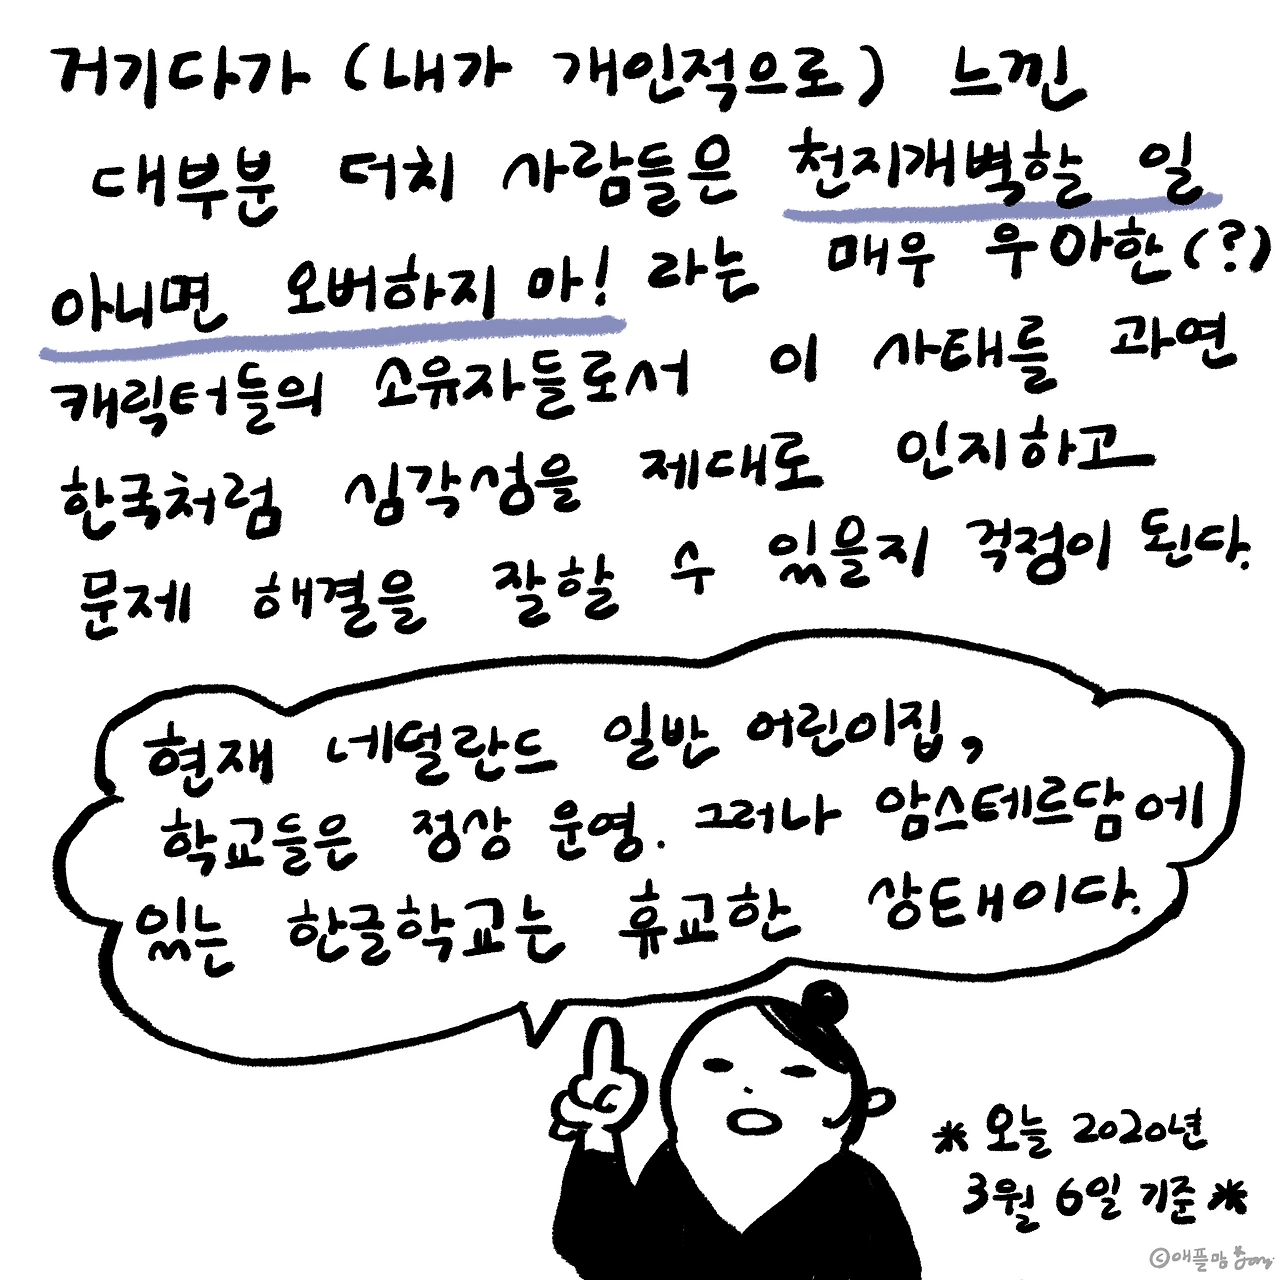 거기다가 (내가 개인적으로) 느낀
대부분 더치 사람들은 천지개벽할 일
아니면 오버하지 마! 라는 매우 우아한(?)
캐릭터들의 소유자들로서 이 사태를 과연
한국처럼 심각성을 제대로 인지하고
문제 해결을 잘할 수 있을지 걱정이 된다.
현재 네덜란드 일반 어린이집,
학교들은 정상 운영. 그러나 암스테르담에
있는 한글학교는 휴교한 상태이다.
* 오늘 2020년
3월 6일 기준 *
©애플맘